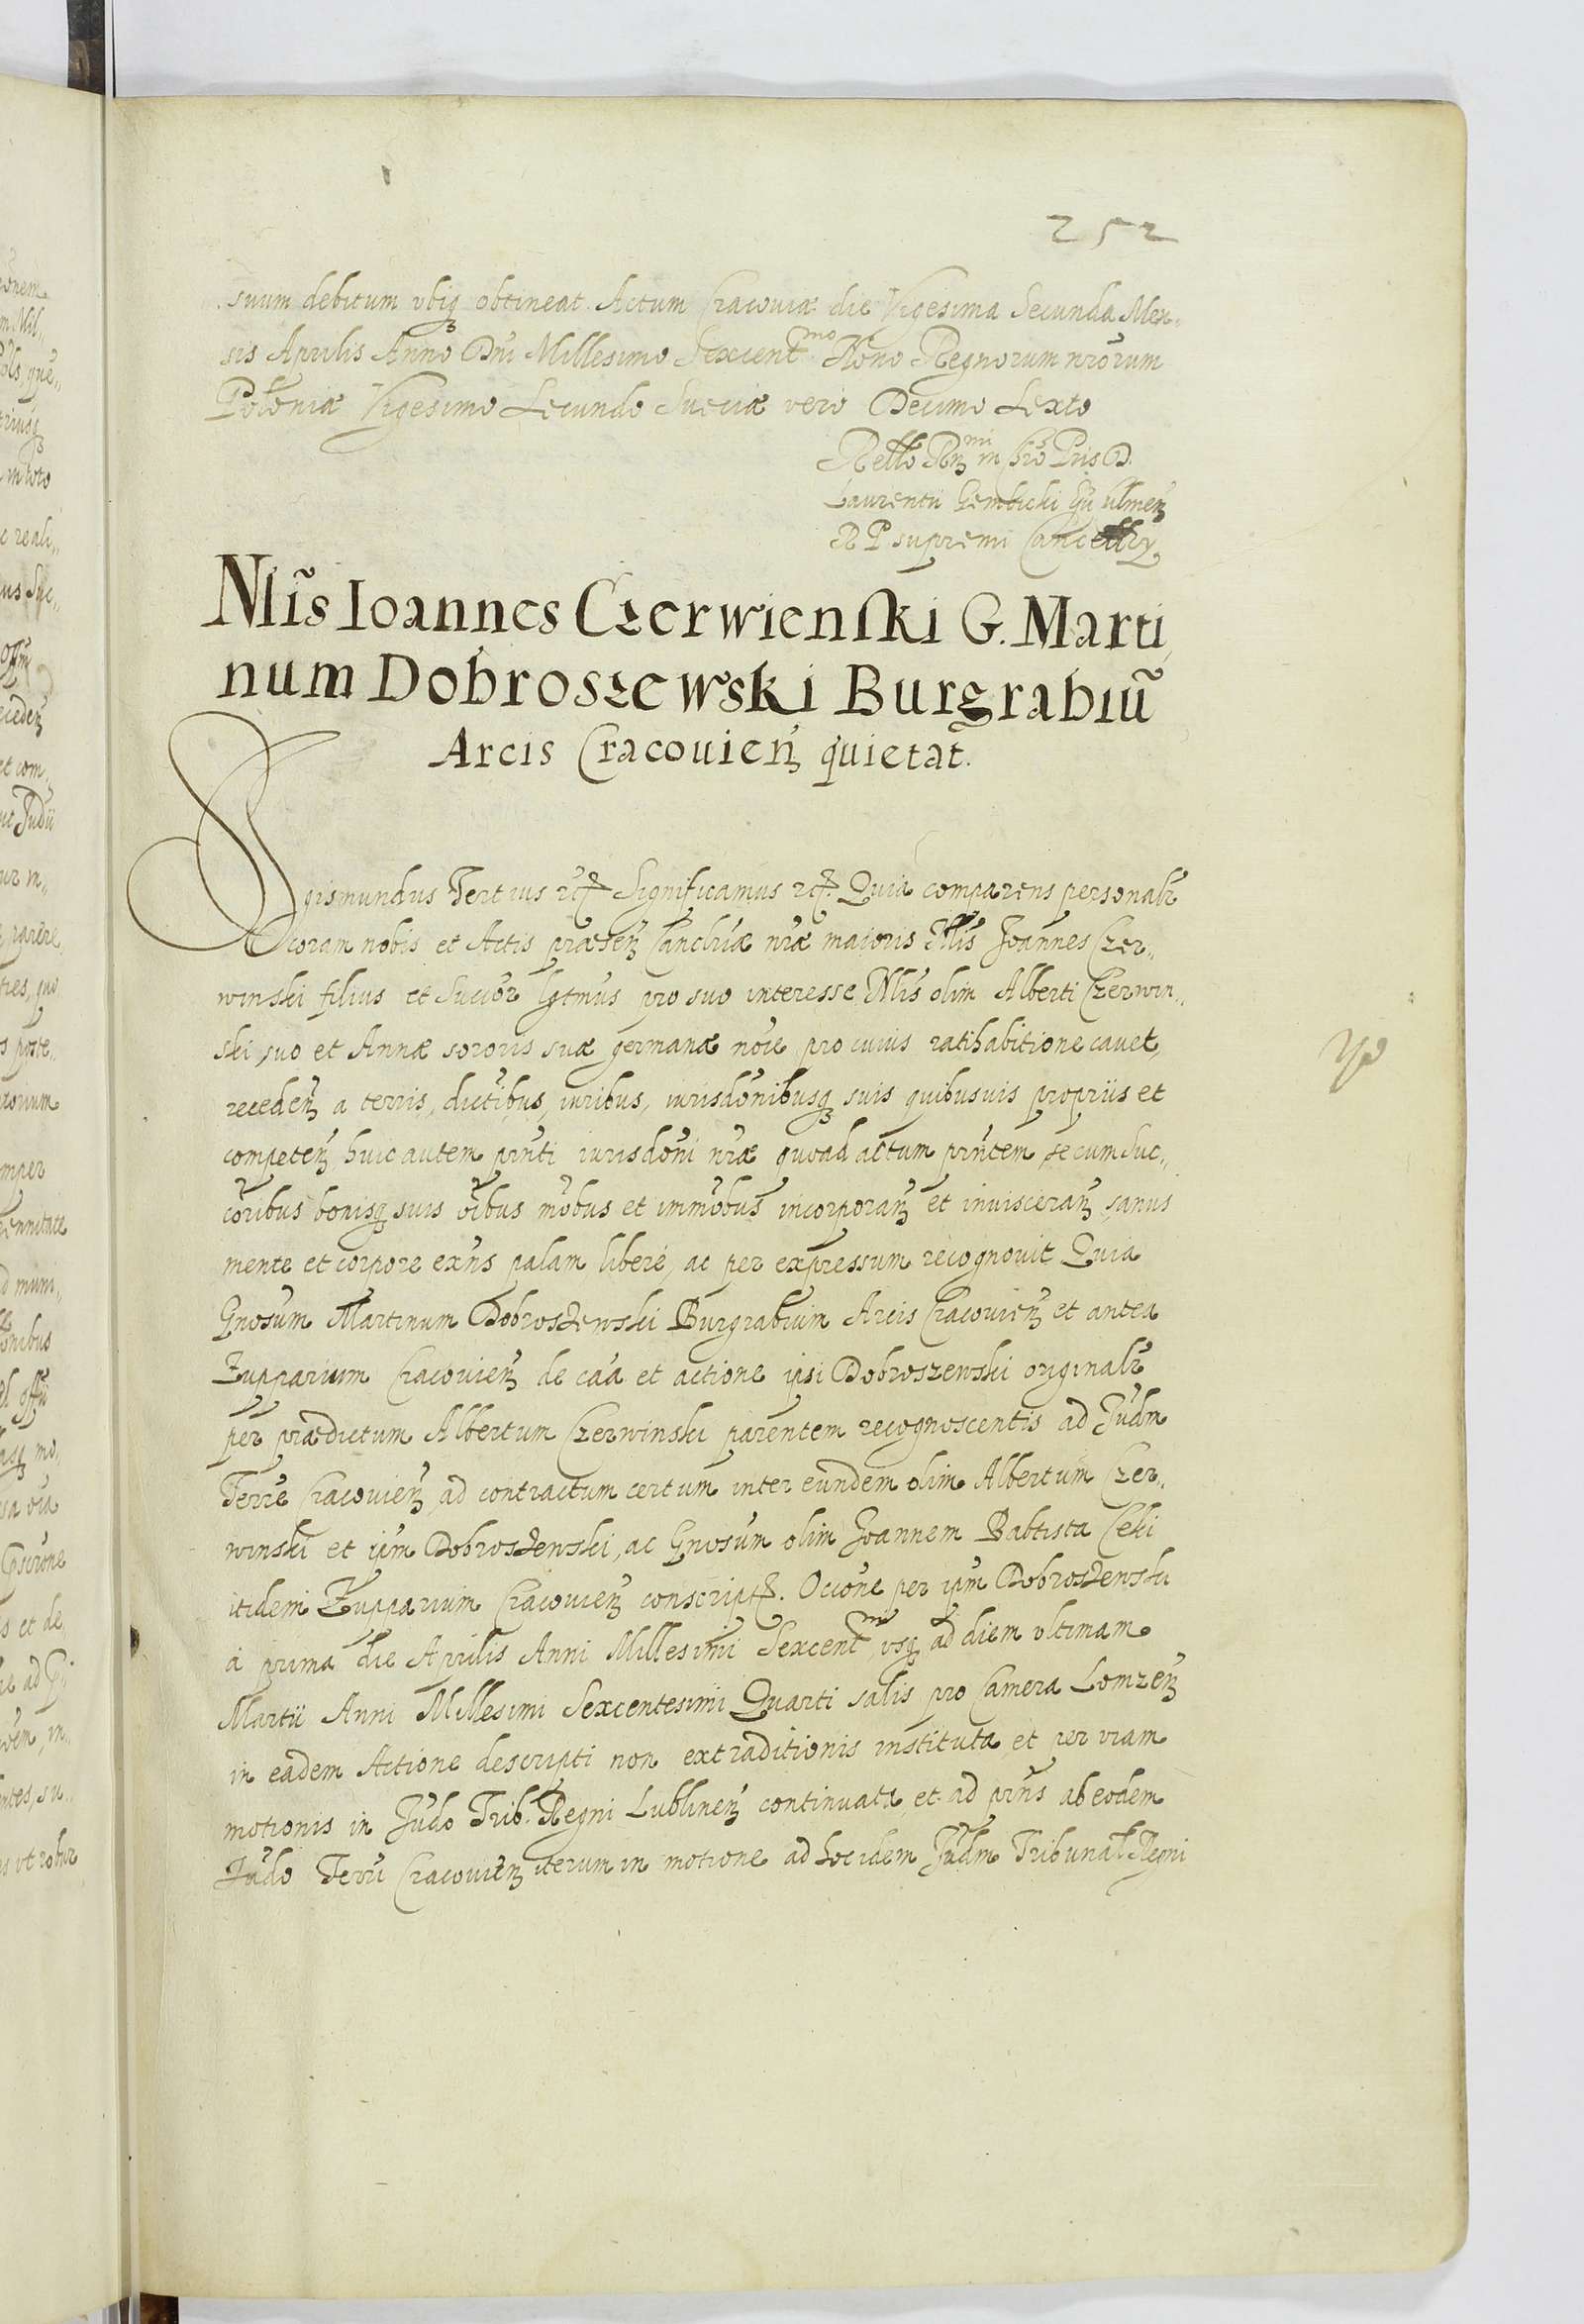 252
suum debitum vbiq obtineat. Actum Cracouiæ die Vigesima Secunda Men..
sis Aprilis Anno Dni Millesimo Sexcentmo Nono Regnorum nrorum
Poloniæ Vigesimo Secundo Sueciæ vero Decimo Sexto
Laurentii Gembicki
R P. supremi Cancellry
Nlis Ioannes Czerwienski G. Marti,
num Dobroszewski Burgrabiũ
Arcis Cracouien quietat.
Sigismundus Tertius rc Significamus rc. Quia comparens personalr
coram nobis et Actis præsen Cancelriæ nræ maioris Nlis Joannes Czer..
winski filius et Succor lgtmus pro suo interesse Nlis olim Alberti Czerwin..
ski, suo et Annæ sororis suæ germanæ noie pro cuius ratihabitione cauet,
receden a terris, dictibus, iuribus, iurisdonibusq suis quibusuis propriis et
competen huic autem pnti iurisdoni nræ quoad actum pntem secum suc..
coribus bonisq suis oibus mobus et immobus incorporan et inuisceran, sanus
mente et corpore exns palam libere, ac per expressum recognouit Quia
Gnosum Martinum Dobroszewski Burgrabium Arcis Cracouien et antea
Zupparium Cracouien de caa et actione ipsi Dobroszewski originalr
per prædictum Albertum Czerwinski parentem recognoscentis ad Judm
Terre Cracouien ad contractum certum inter eundem olim Albertum Czer..
winski et ipm Dobroszewski, ac Gnosum olim Joannem Baptista Ceki
itidem Zupparium Cracouien conscript. Occone per ipm Dobroszewski
a prima die Aprilis Anni Millesimi Sexcentmi vsq ad diem vltimam
Martii Anni Millesimi Sexcentesimi Quarti salis pro Camera Lomzen
in eadem Actione descripti non extraditionis instituta, et per viam
motionis in Judo Trib. Regni Lublinen continuata, et ad prns ab eodem
Judo Terri Cracouien iterum in motione ad hocidem Judm Tribunal Regni